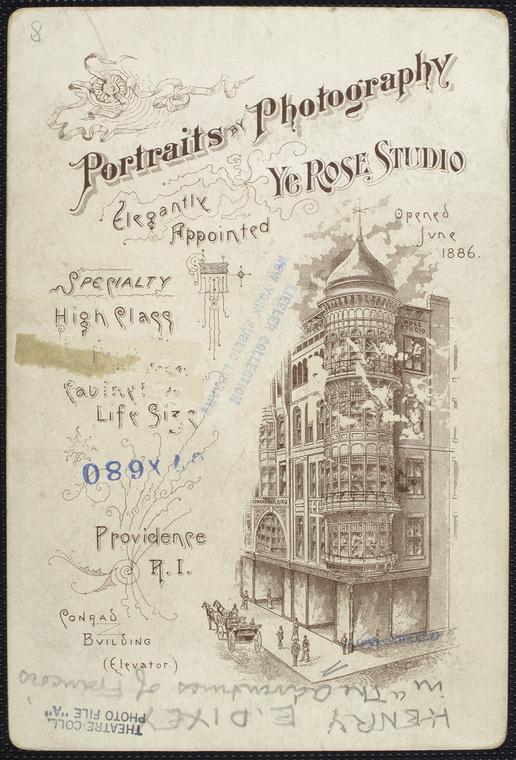 8
Portraits by Photography
Ye Rose Studio
Elegantly
Appointed
Opened
June
1886.
Specialty
High Class
Cabinet
Life Size
ZIEGLER COLLECTION
NEW YORK PUBLIC LIBRARY
089X
Providence
R.I.
CONRAD BUILDING
ROSE
STUDIO
Conrad
Building
(Elevator.)
HENRY E. DIXEY
in "The Adventures of Francois"
THEATRE COLL.
PHOTO FILE "A"